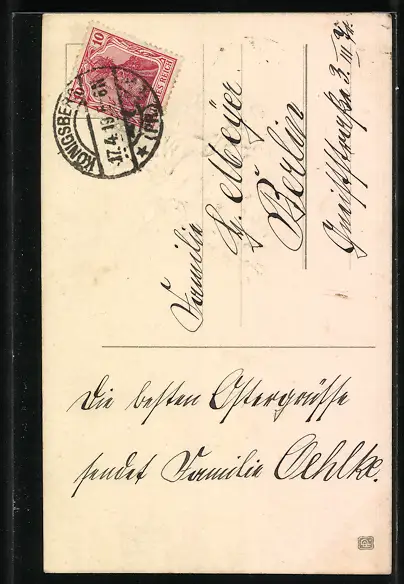 10
DEUTSCHES REICH
KÖNIGSBERG
17.4.19
Familie
G. Meyer.
Berlin
3. III
Die besten Ostergrüsse
sendet Familie Oehlke.